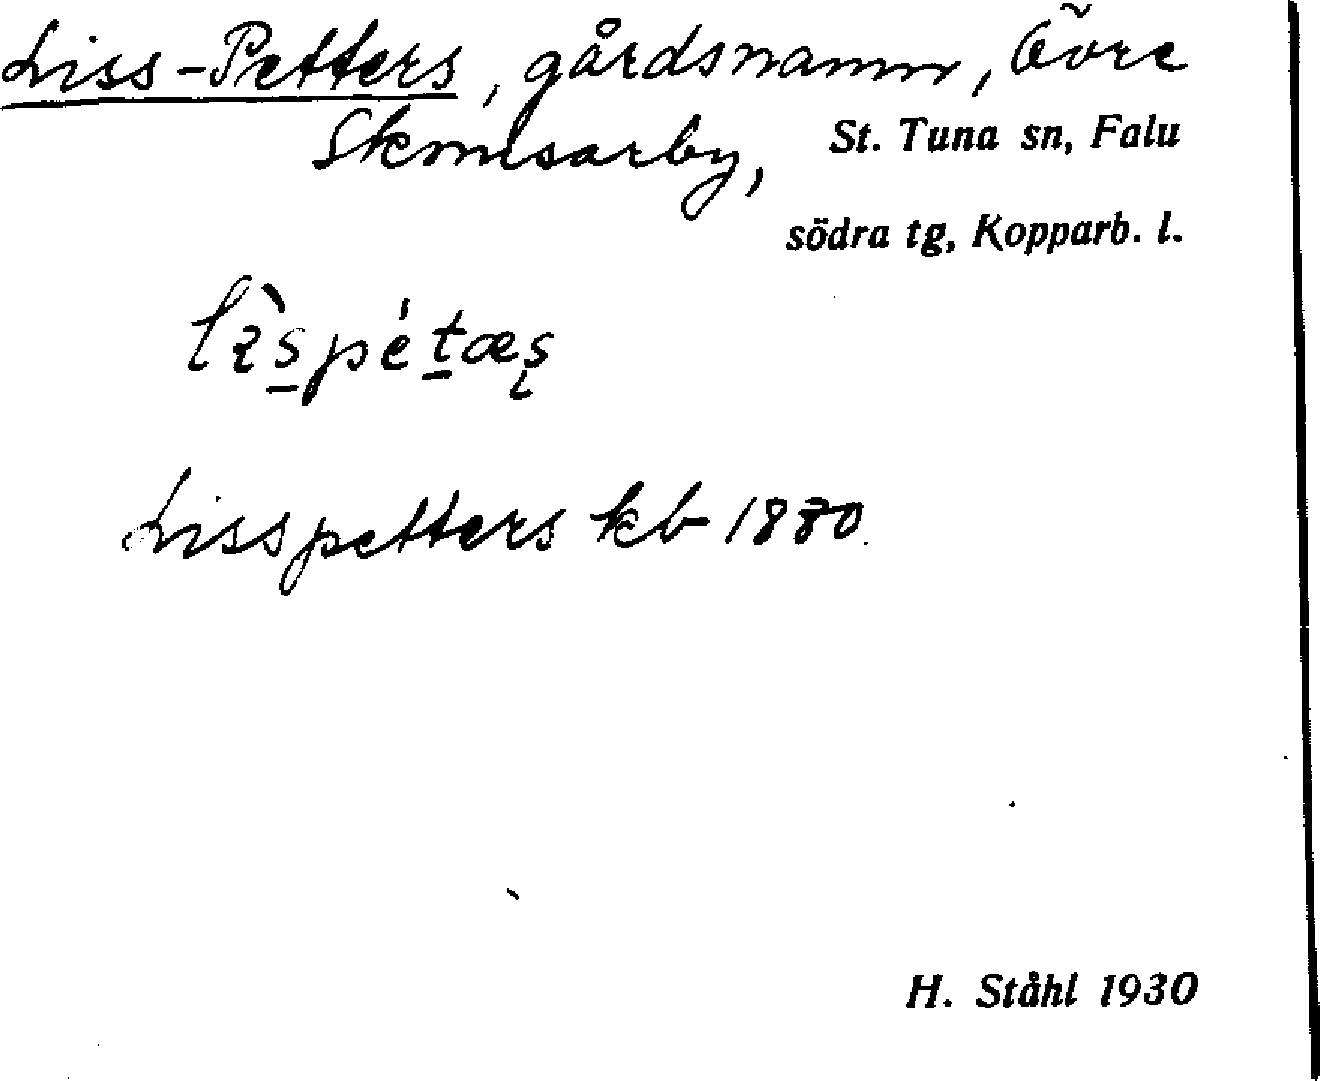 Liss-Petters, gårdsnamn, Övre
Skomsarby,
St. Tuna sn, Falu
södra tg, Kopparb. l.
Lisspetters kb 1880.
H. Ståhl 1930